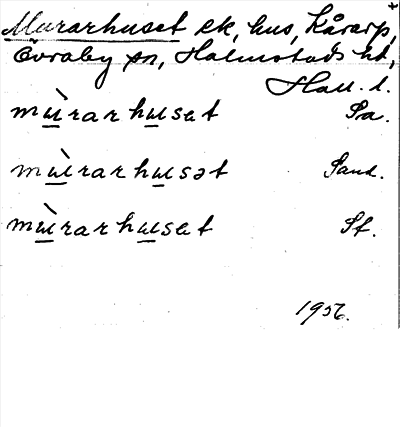 Murarhuset ek, hus, Kårarp,
Övraby sn, Halmstads hd,
Hall. l.
mùrarhusat Sa.
mùrarhusət Sand.
mùrarhusat St.
1956.